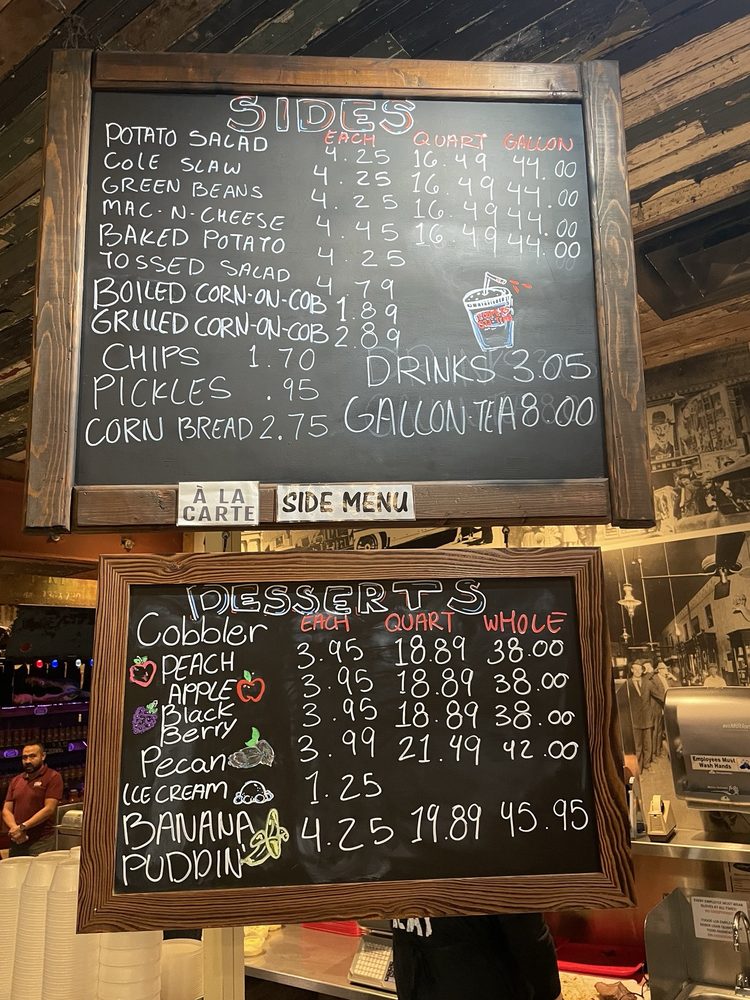 SIDES
EACH QUART GALLON
POTATO SALAD 4.25 16.49 44.00
COLE SLAW 4.25 16.49 44.00
GREEN BEANS 4.25 16.49 44.00
MAC-N-CHEESE 4.45 16.49 44.00
BAKED POTATO 4.25
TOSSED SALAD 4.79
BOILED CORN-ON-COB 1.89
GRILLED CORN-ON-COB 2.89
CHIPS 1.70
PICKLES .95
CORN BREAD 2.75
DRINKS 3.05
GALLON-TEA 8.00
À LA
CARTE
SIDE MENU
DESSERTS
EACH QUART WHOLE
Cobbler
PEACH 3.95 18.89 38.00
APPLE 3.95 18.89 38.00
Black
Berry 3.95 18.89 38.00
Pecan 3.99 21.49 42.00
ICE CREAM 1.25
BANANA
PUDDIN' 4.25 19.89 45.95
Employees Must
Wash Hands